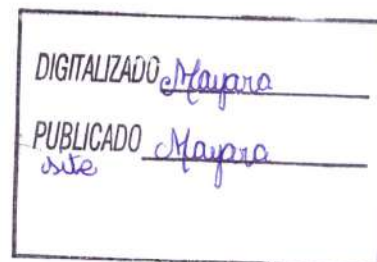 DIGITALIZADO Mayara
PUBLICADO Mayara
site